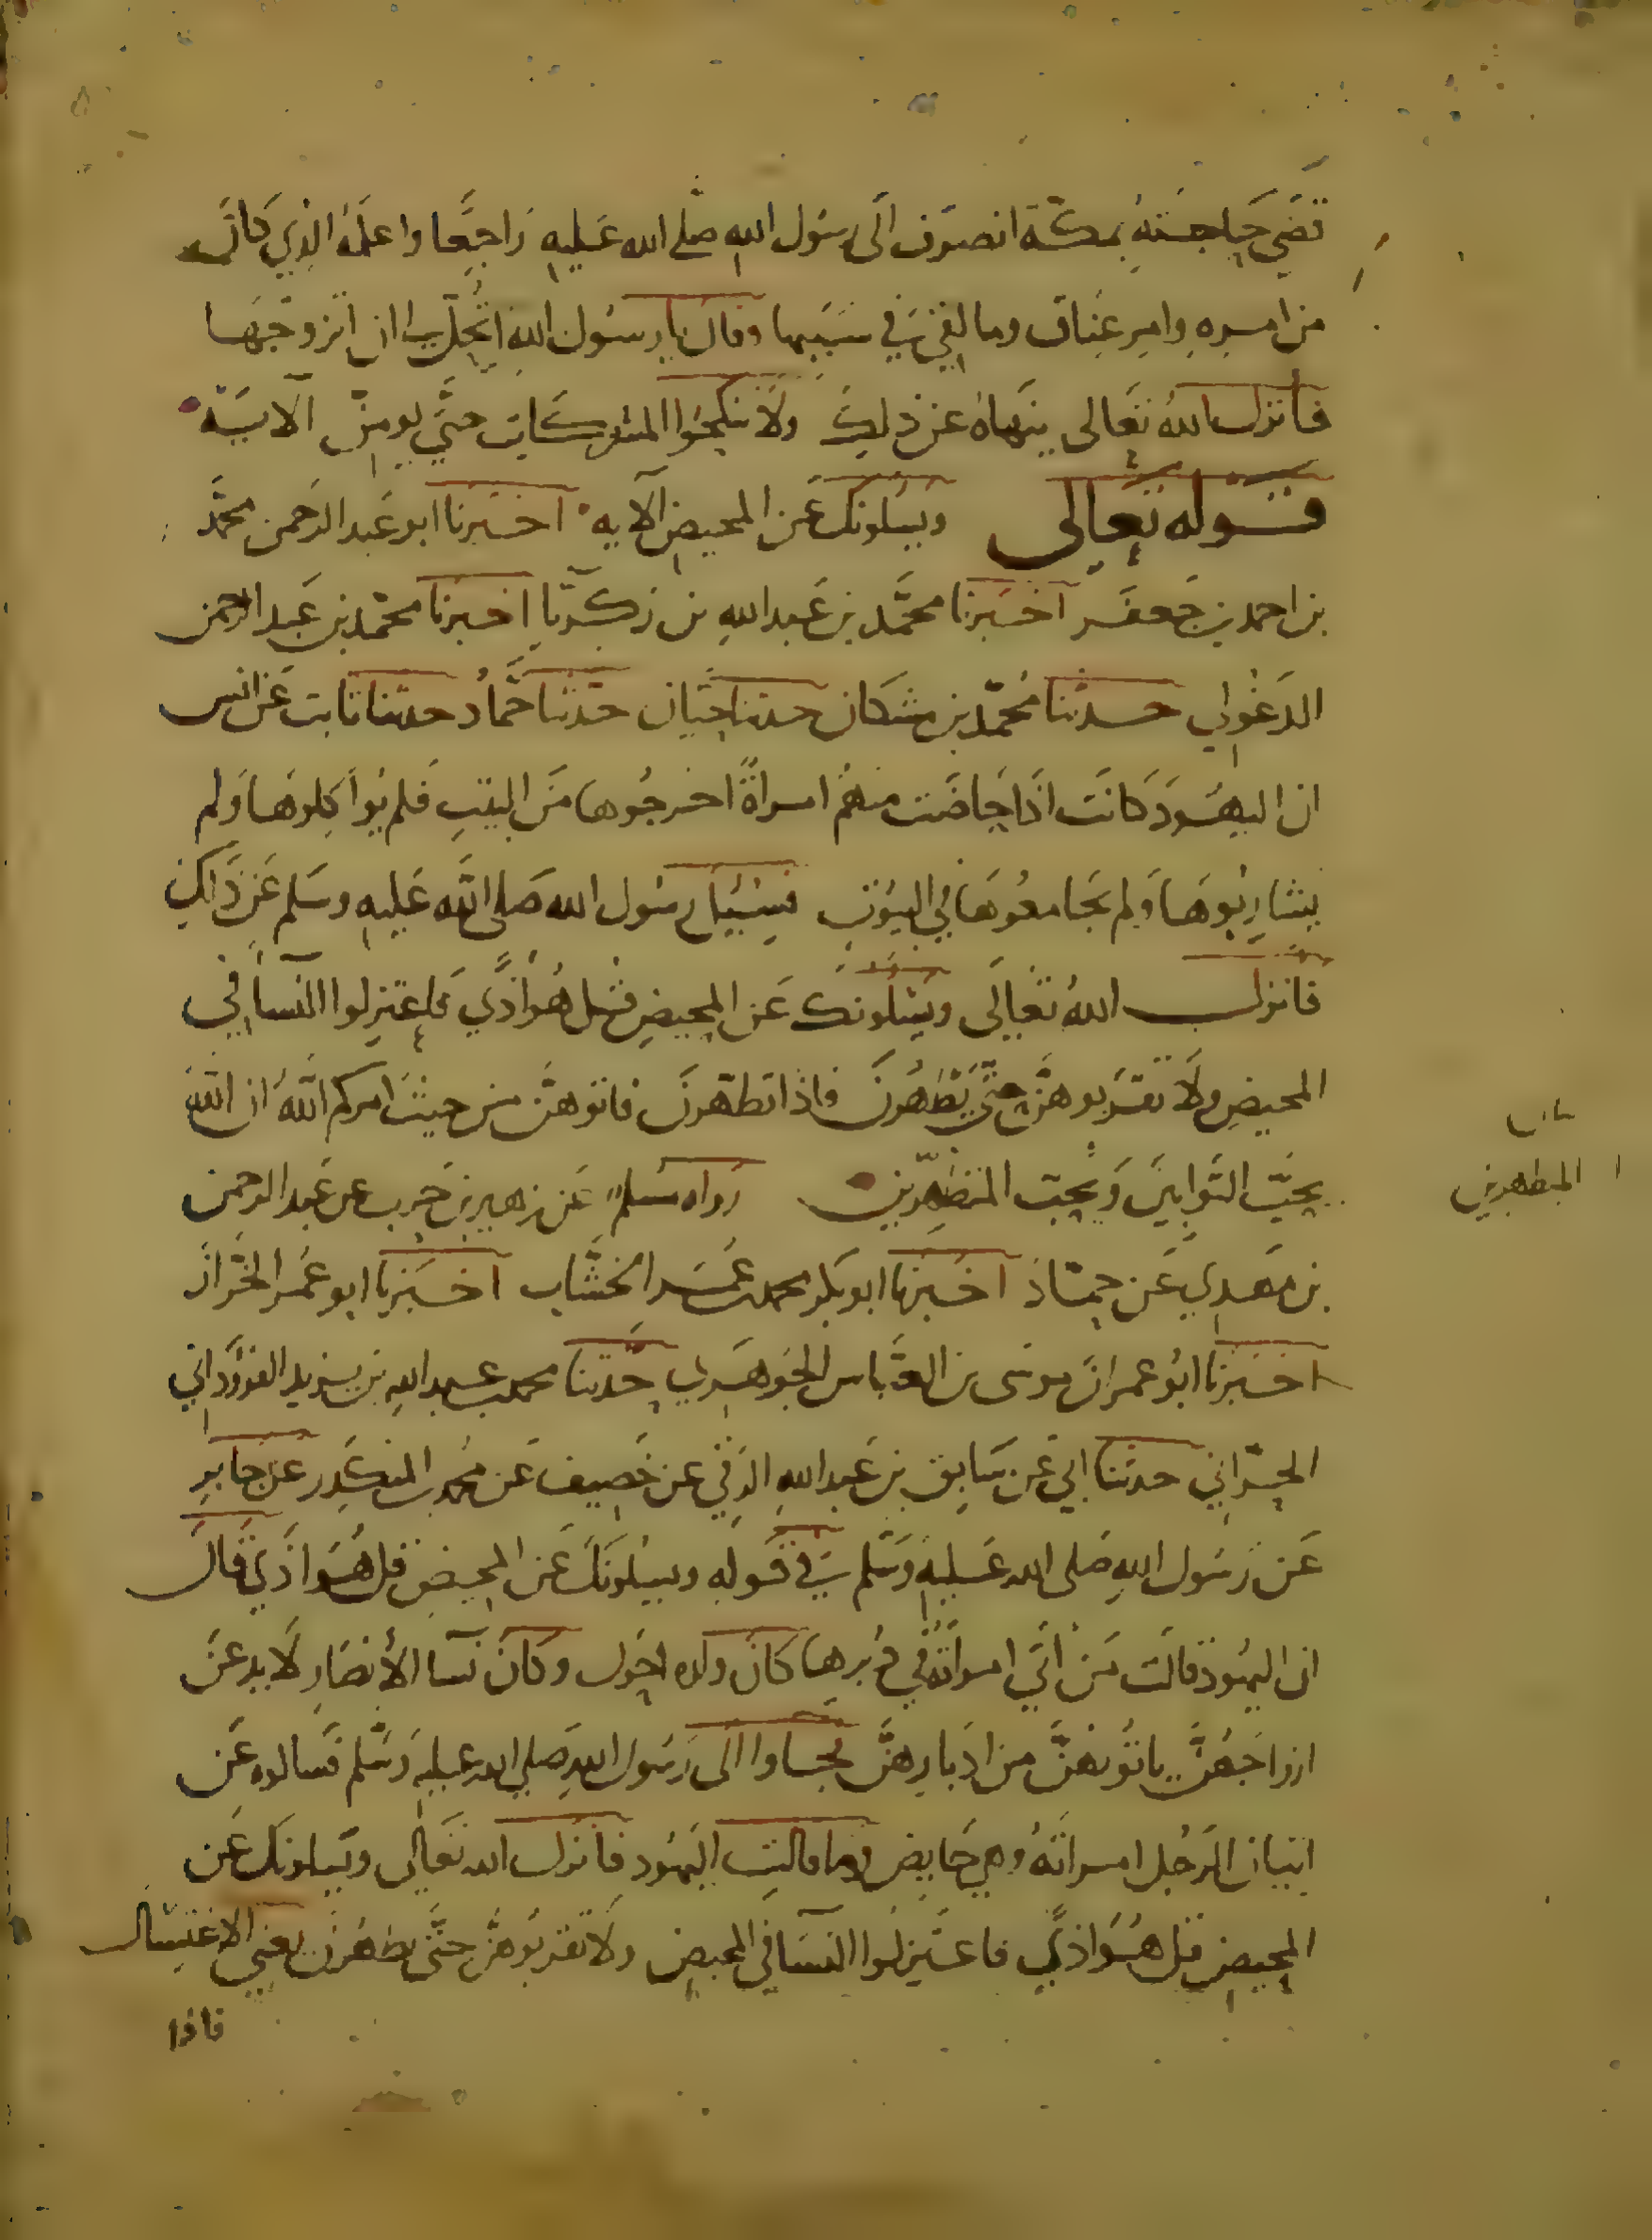 قضي حاجته بمكة انصرف الى رسول الله صلى الله عليه راجعا واعلمه الذي كان
من امره وامر عناق وما لقي في سببها وقال يا رسول الله اتحل لي ان اتزوجها
فأنزل الله تعالى ينهاه عن ذلك ولا تنكحوا المشركات حتى يومن الآية
قوله تعالى ويسلونك عن المحيض الآيه اخبرنا ابو عبد الرحمن محمد
بن احمد بن جعفر اخبرنا محمد بن عبد الله بن زكريا اخبرنا محمد بن عبد الرحمن
الدغولي حدثنا محمد بن مشكان حدثنا حيان حدثنا حماد حدثنا ثابت عن انس
ان اليهود كانت اذا حاضت منهم امراة اخرجوها من البيت فلم يواكلوها ولم
يشاربوها ولم يجامعوها في البيوت فسيل رسول الله صلى الله عليه وسلم عن ذلك
فانزل الله تعالى ويسلونك عن المحيض قل هو اذي فاعتزلوا النسا في
المحيض ولا تقربوهن حتى يطهرن فاذا تطهرن فاتوهن من حيث امركم الله ان الله
يحب التوابين ويحب المتطهرين رواه مسلم عن زهير بن حرب عن عبد الرحمن
المتطهرين
بن مهدي عن حماد اخبرنا ابو بكر محمد بن عمر الخشاب اخبرنا ابو عمر الخزاز
اخبرنا ابو عمران موسى بن العباس الجوهري حدثنا محمد بن عبيد الله بن يزيد القردواني
الحراني حدثنا ابي عن سابق بن عبد الله الرقي عن خصيف عن محمد بن المنكدر عن جابر
عن رسول الله صلى الله عليه وسلم في قوله ويسلونك عن المحيض قل هو اذي قال
ان اليهود قالت من اتى امراته في دبرها كان ولده احول وكان نسا الأنصار لا يدعن
ازواجهن ياتونهن من ادبارهن فجاوا الى رسول الله صلى الله عليه وسلم فسالوه عن
اتيان الرجل امراته وهي حايض وما قالت اليهود فانزل الله تعالى ويسلونك عن
المحيض قل هو اذي فاعتزلوا النسا في المحيض ولا تقربوهن حتى يطهرن يعني الاغتسال
فاذا